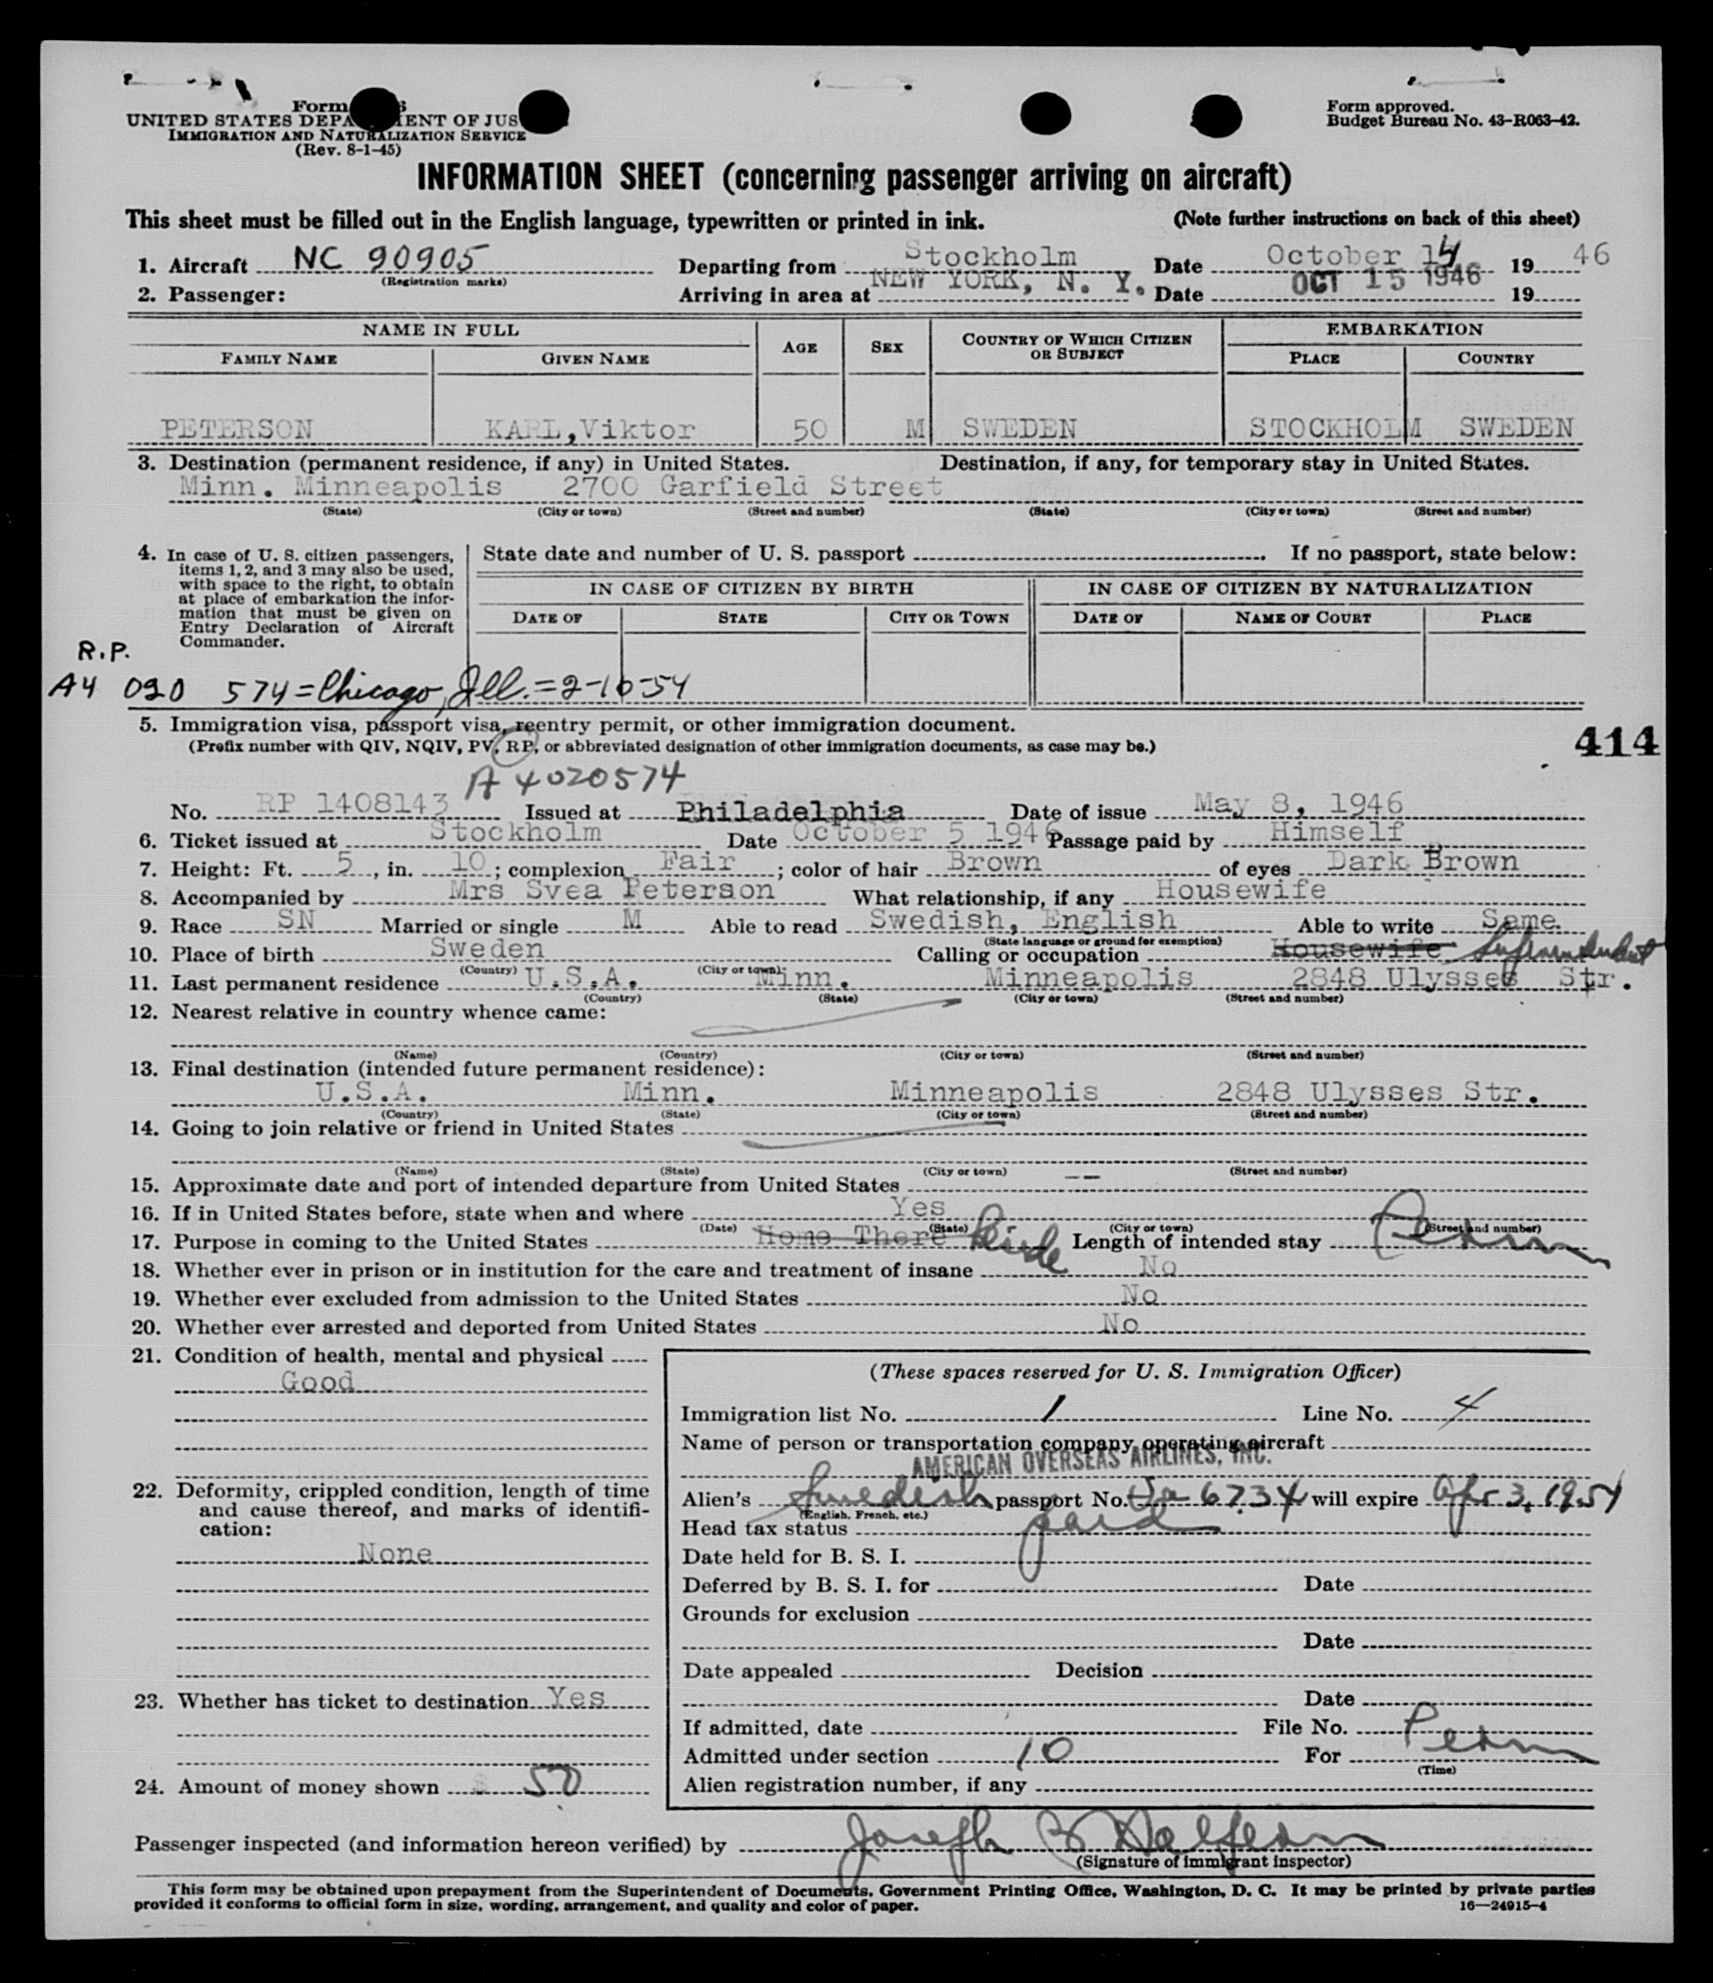 Form
UNITED STATES DEPA ENT OF JUS
IMMIGRATION AND NATURALIZATION SERVICE
(Rev. 8-1-45)
Form approved.
Budget Bureau No. 43-R063-42.
INFORMATION SHEET (concerning passenger arriving on aircraft)
This sheet must be filled out in the English language, typewritten or printed in ink. (Note further instructions on back of this sheet)
1. Aircraft NC 90905 Departing from Stockholm Date October 14 19 46
(Registration marks)
2. Passenger: Arriving in area at NEW YORK, N. Y. Date OCT 15 1946 19
NAME IN FULL AGE SEX COUNTRY OF WHICH CITIZEN OR SUBJECT EMBARKATION
FAMILY NAME GIVEN NAME PLACE COUNTRY
PETERSON KARL,Viktor 50 M SWEDEN STOCKHOLM SWEDEN
3. Destination (permanent residence, if any) in United States. Destination, if any, for temporary stay in United States.
Minn. Minneapolis 2700 Garfield Street
(State) (City or town) (Street and number) (State) (City or town) (Street and number)
4. In case of U. S. citizen passengers,
items 1, 2, and 3 may also be used,
with space to the right, to obtain
at place of embarkation the infor-
mation that must be given on
Entry Declaration of Aircraft
Commander.
State date and number of U. S. passport . If no passport, state below:
IN CASE OF CITIZEN BY BIRTH IN CASE OF CITIZEN BY NATURALIZATION
DATE OF STATE CITY OR TOWN DATE OF NAME OF COURT PLACE
R.P.
A4 020 574=Chicago, Ill.=2-10-54
5. Immigration visa, passport visa, reentry permit, or other immigration document.
(Prefix number with QIV, NQIV, PV, RP, or abbreviated designation of other immigration documents, as case may be.)
414
A 4020574
No. RP 1408143 Issued at Philadelphia Date of issue May 8, 1946
6. Ticket issued at Stockholm Date October 5 1946 Passage paid by Himself
7. Height: Ft. 5, in. 10; complexion Fair; color of hair Brown of eyes Dark Brown
8. Accompanied by Mrs Svea Peterson What relationship, if any Housewife
9. Race SN Married or single M Able to read Swedish, English Able to write Same
(State language or ground for exemption)
10. Place of birth Sweden Calling or occupation Housewife Superintendent
(Country) (City or town)
11. Last permanent residence U.S.A. Minn. Minneapolis 2848 Ulysses Str.
(Country) (State) (City or town) (Street and number)
12. Nearest relative in country whence came:
(Name) (Country) (City or town) (Street and number)
13. Final destination (intended future permanent residence):
U.S.A. Minn. Minneapolis 2848 Ulysses Str.
(Country) (State) (City or town) (Street and number)
14. Going to join relative or friend in United States
(Name) (State) (City or town) (Street and number)
15. Approximate date and port of intended departure from United States —
16. If in United States before, state when and where Yes
(Date) (State) (City or town) (Street and number)
17. Purpose in coming to the United States Home There Reside Length of intended stay Perm
18. Whether ever in prison or in institution for the care and treatment of insane No
19. Whether ever excluded from admission to the United States No
20. Whether ever arrested and deported from United States No
21. Condition of health, mental and physical
Good
22. Deformity, crippled condition, length of time
and cause thereof, and marks of identifi-
cation:
None
23. Whether has ticket to destination Yes
24. Amount of money shown $ 50
(These spaces reserved for U. S. Immigration Officer)
Immigration list No. 1 Line No. 4
Name of person or transportation company operating aircraft
AMERICAN OVERSEAS AIRLINES, INC.
Alien's Swedish passport No. 6734 will expire Apr 3, 1951
(English, French, etc.)
Head tax status paid
Date held for B. S. I.
Deferred by B. S. I. for Date
Grounds for exclusion
Date
Date appealed Decision
Date
If admitted, date File No.
Admitted under section 10 For Perm
(Time)
Alien registration number, if any
Passenger inspected (and information hereon verified) by Joseph B
(Signature of immigrant inspector)
This form may be obtained upon prepayment from the Superintendent of Documents, Government Printing Office, Washington, D. C. It may be printed by private parties
provided it conforms to official form in size, wording, arrangement, and quality and color of paper.
16—24915-4